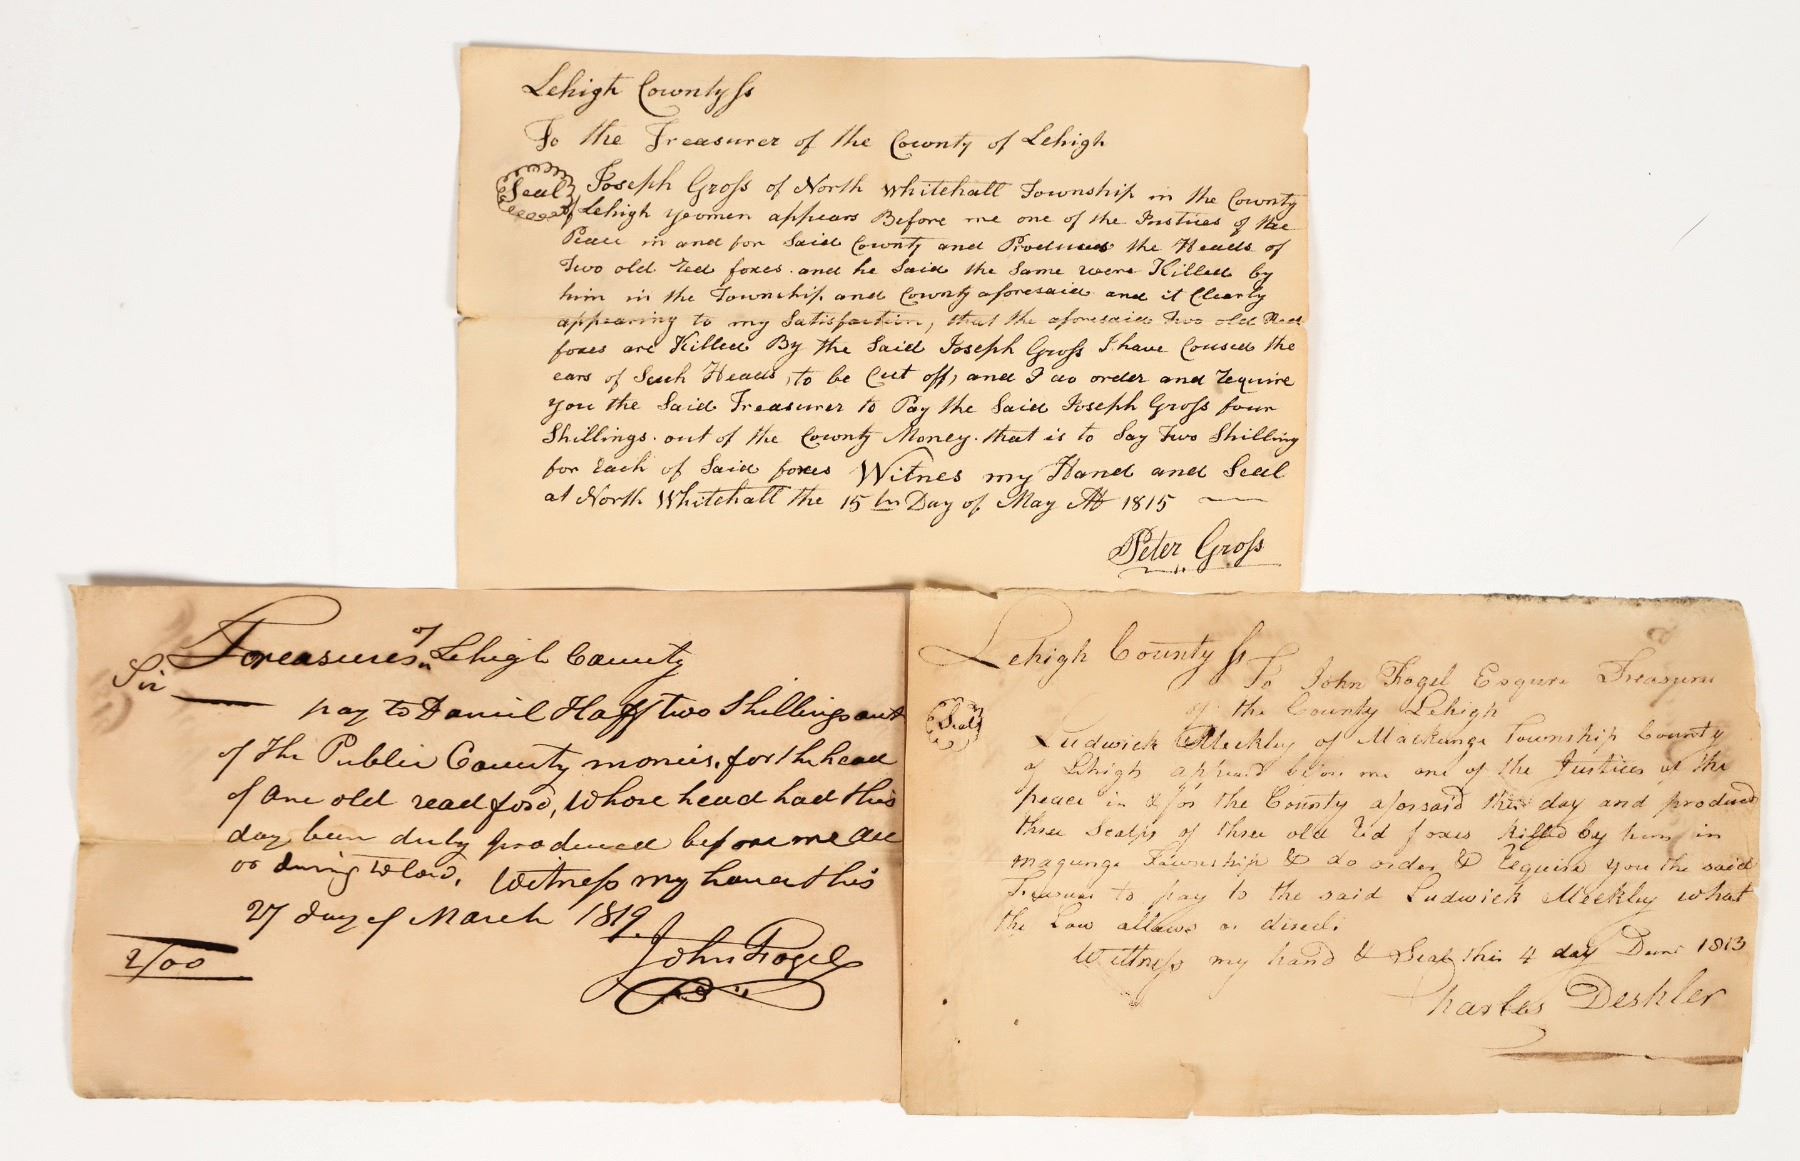 Lehigh County ss
To the Treasurer of the County of Lehigh
Seal
Joseph Gross of North Whitehall Township in the County
of Lehigh yeomen appears Before me one of the Justices of the
Peace in and for Said County and Produces the Heads of
Two old Red foxes and he Said the Same were Killed by
him in the Township and County aforesaid and it Clearly
appearing to my Satisfaction, that the aforesaid Two old Red
foxes are Killed By the Said Joseph Gross I have Coused the
ears of Such Heads, to be Cut off, and I do order and require
you the Said Treasurer to Pay the Said Joseph Gross four
Shillings out of the County Money that is to Say Two Shilling
for Each of Said foxes Witnes my Hand and Seal
at North Whitehall the 15th Day of May AD 1815
Peter Gross
Treasurer of Lehigh County
Sir
pay to Daniel Haff two Shillings out
of the Public County monies, for the head
of one old read fox, Whose head had this
day been duly produced before me
Witness my hand this
27 day of March 1819.
John Fogel
2/00
Lehigh County ss
To John Fogel Esqure Treasurer
of the County Lehigh
Seal
Ludwick Meckley of Mackunge Township County
of Lehigh before me one of the Justices of the
peace in & for the County aforsaid this day and produced
three Scalps of three old Red foxes killed by him in
Township & do order & require you the said
Treasurer to pay to the said Ludwick Meckley what
the Law allows
Wittness my hand & Seal this 4 day 1813
Charles Deshler